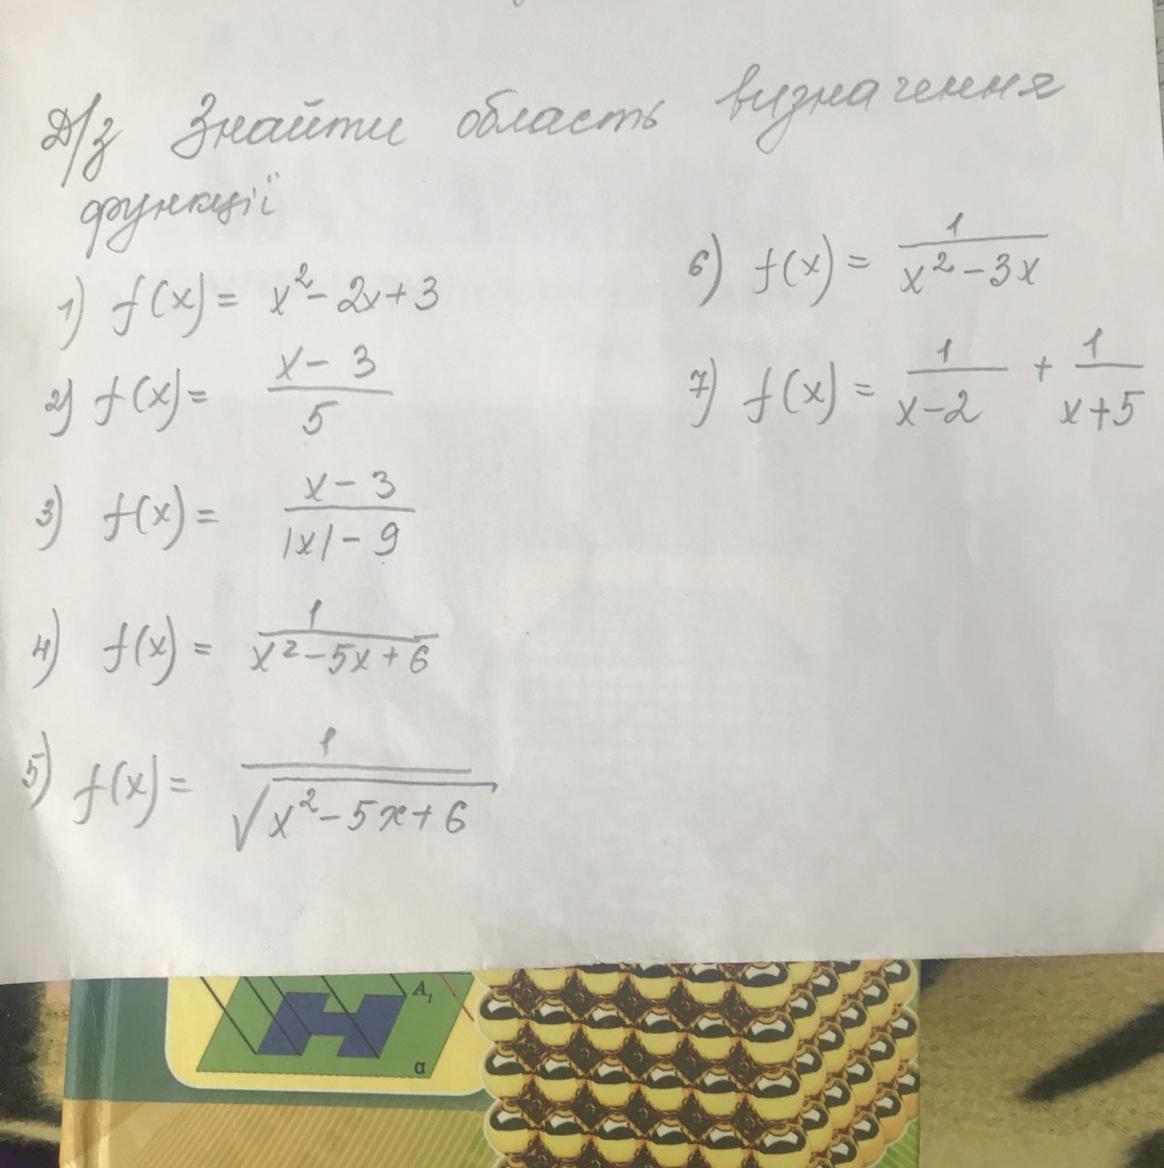 Д/з Знайти область визначення
функції
1) f(x) = x² - 2x + 3
2) f(x) = (x - 3)/5
3) f(x) = (x - 3)/(|x| - 9)
4) f(x) = 1/(x² - 5x + 6)
5) f(x) = 1/√(x² - 5x + 6)
6) f(x) = 1/(x² - 3x)
7) f(x) = 1/(x - 2) + 1/(x + 5)
A₁
α